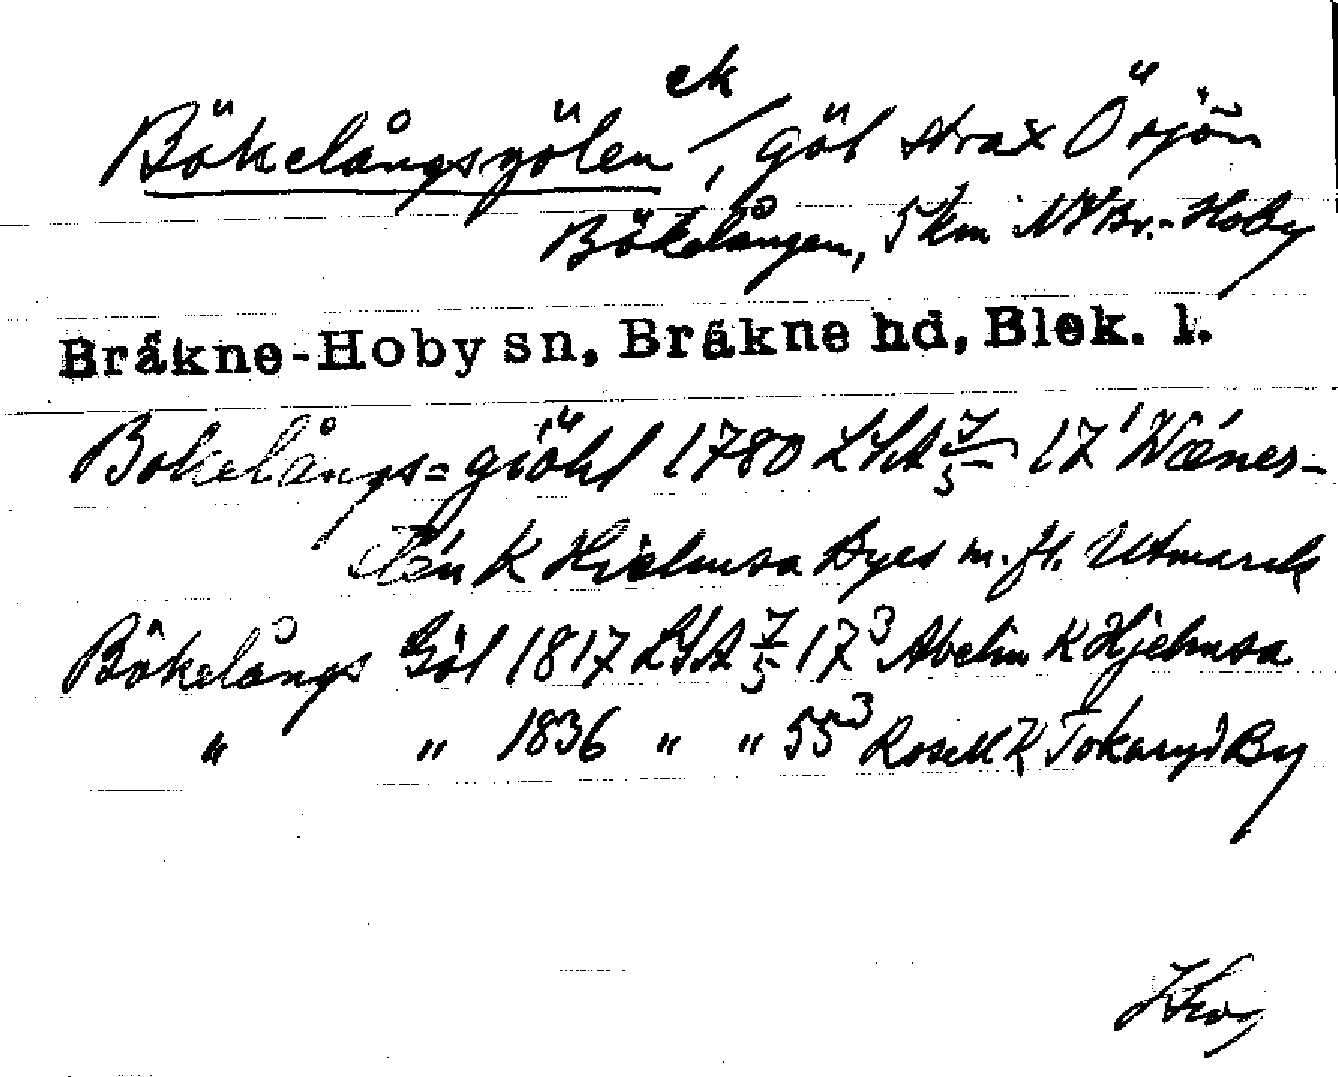 Bökelångsgölen ek/, göl strax Ö sjön
Bökelången, 5 km NV Br.-Hoby
Bräkne-Hoby sn, Bräkne hd, Blek. l.
Bokelångs=giöhl 1780 LSA 7/5 17¹ Wænes-
K Hielmsa Byes m. fl. Utmarck
Bökelångs Göl 1817 LSA 7/5 17³ Abelin K Hjelmsa
" " 1836 " " 55³ Rosell K Tokaryd By